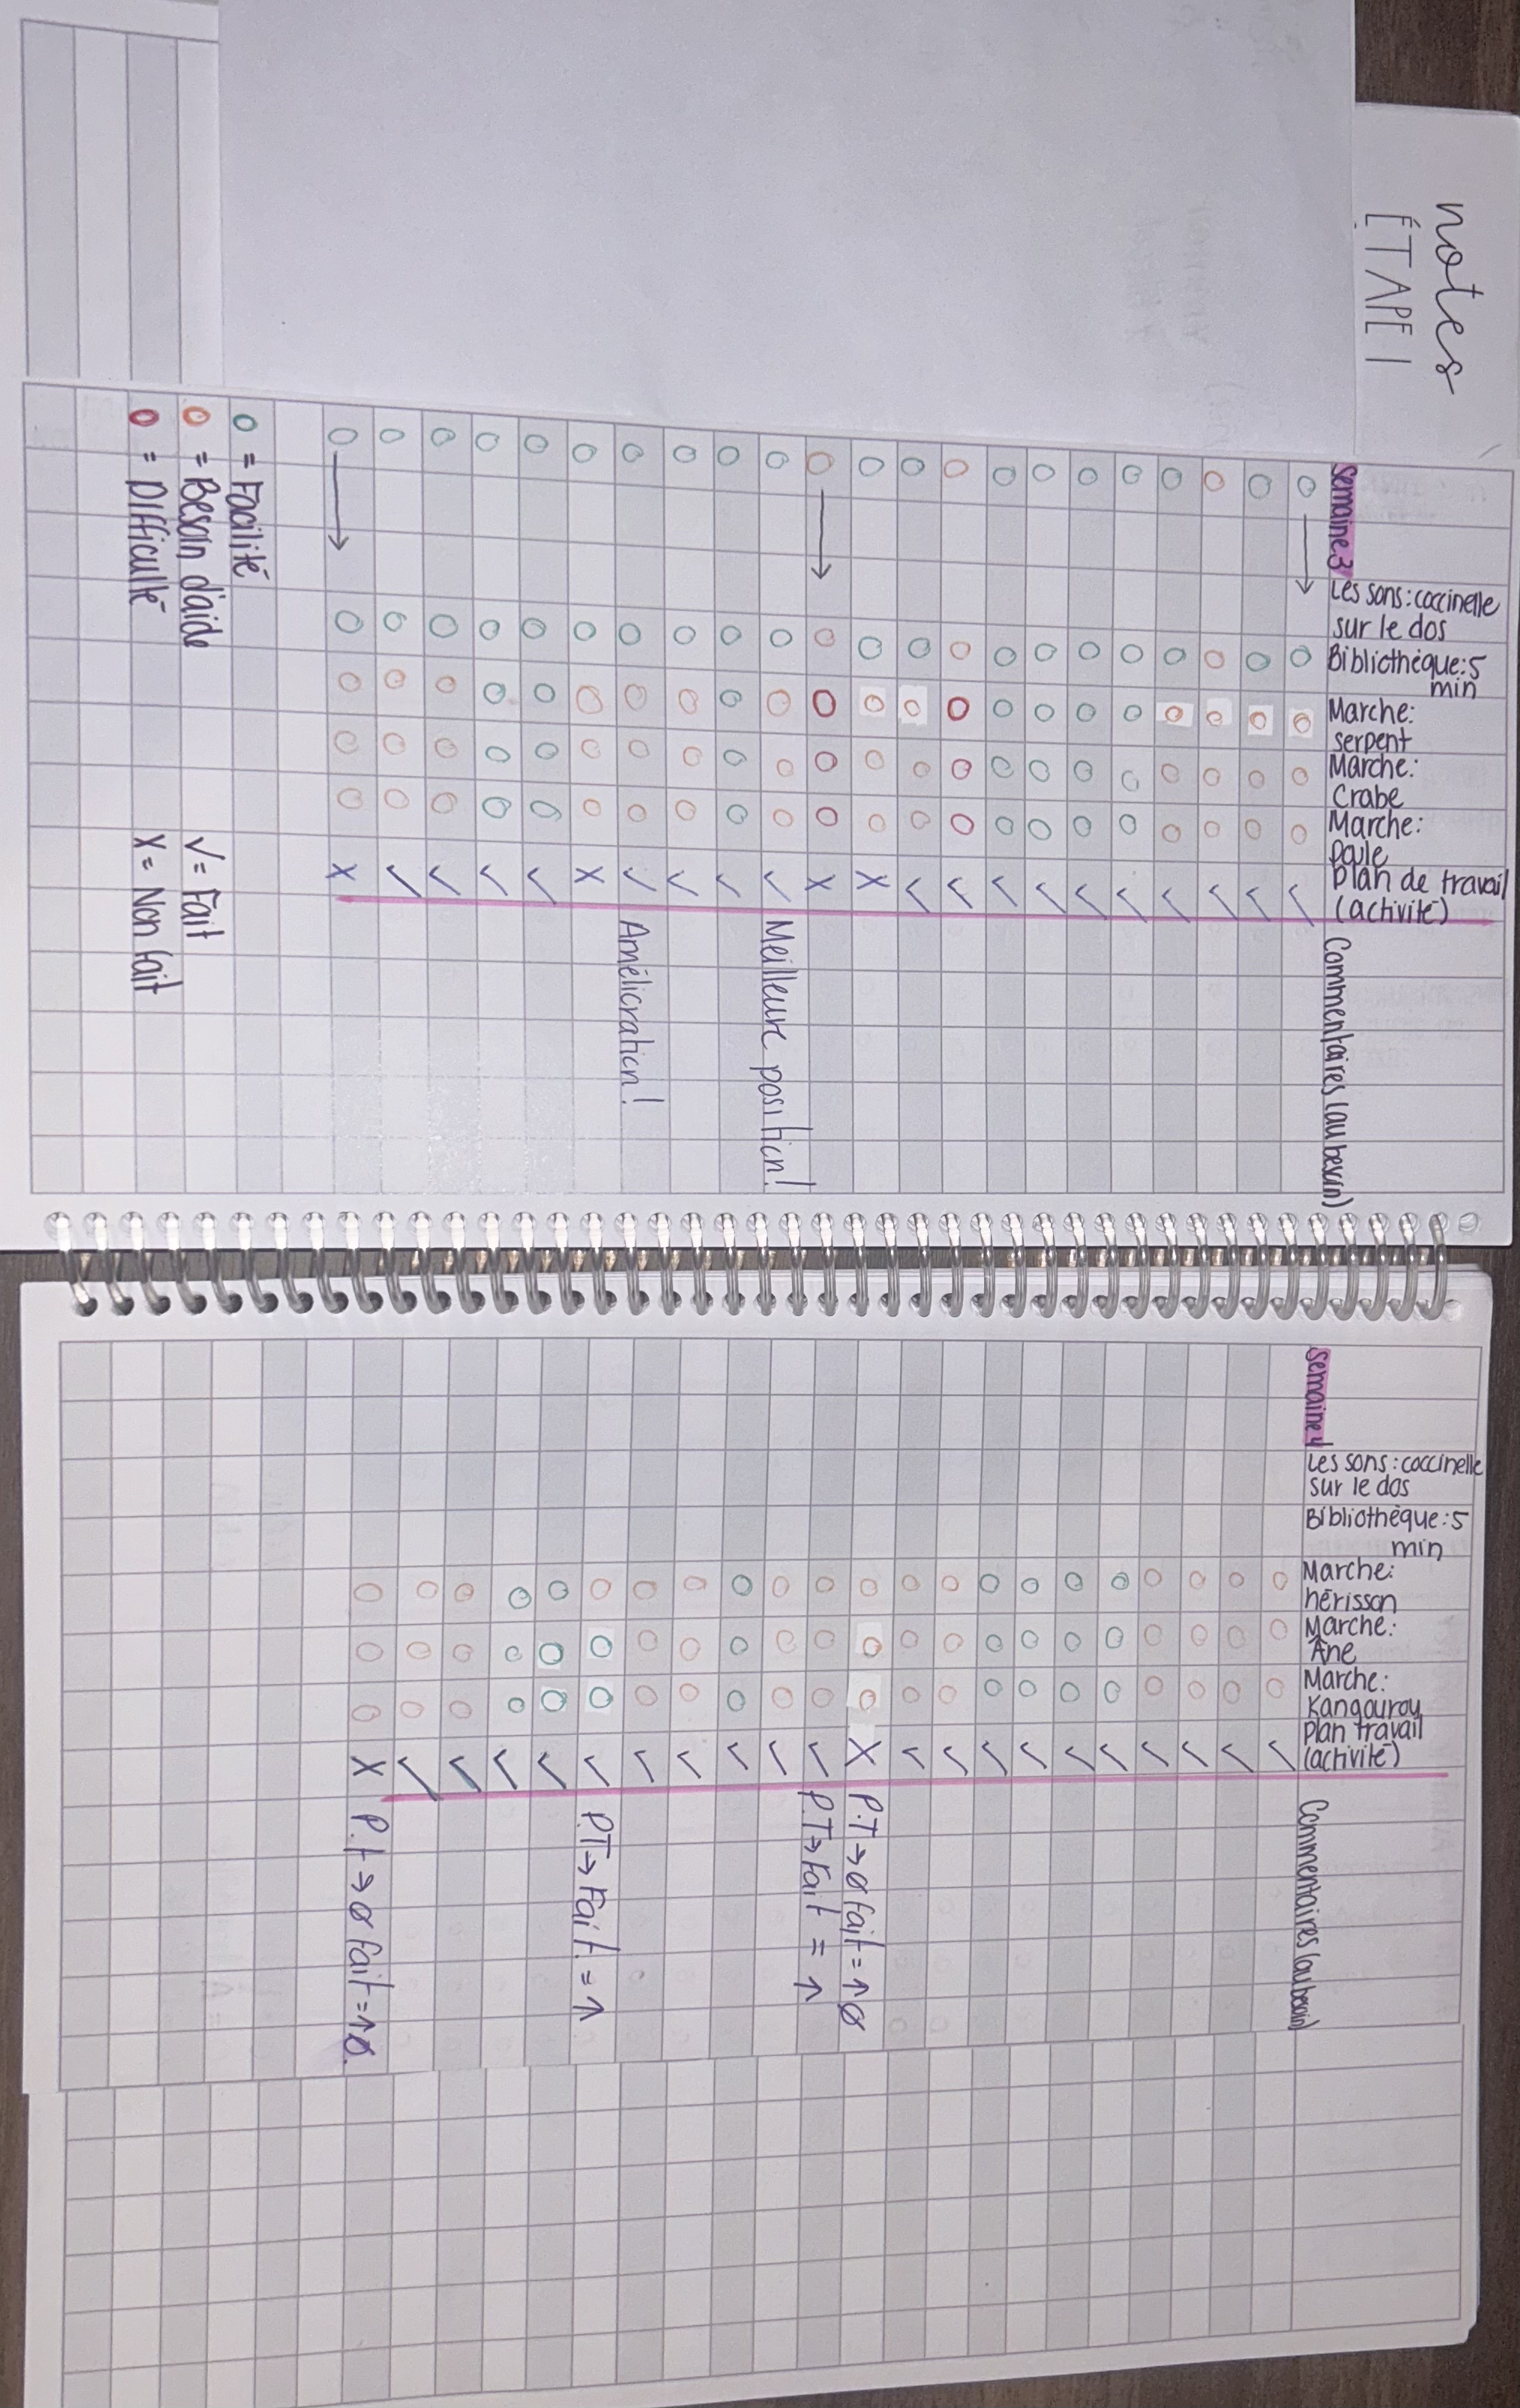 notes
ÉTAPE 1
Semaine 3
Les sons : coccinelle
sur le dos
Bibliothèque : 5
min
Marche :
serpent
Marche :
Crabe
Marche :
poule
plan de travail
(activité)
Commentaires (au besoin)
✓ ✓ ✓ ✓ ✓ ✓ ✓ ✓ ✓ ✓ X X ✓ ✓ ✓ ✓ X ✓ ✓ ✓ ✓ X
Meilleure position!
Amélioration!
O = Facilité
O = Besoin d'aide
O = Difficulté
✓ = Fait
X = Non fait
Semaine 4
Les sons : coccinelle
sur le dos
Bibliothèque : 5
min
Marche :
hérisson
Marche :
Âne
Marche :
Kangourou
plan travail
(activité)
Commentaires (au besoin)
✓ ✓ ✓ ✓ ✓ ✓ ✓ ✓ ✓ ✓ X ✓ ✓ ✓ ✓ ✓ ✓ ✓ ✓ ✓ ✓ X
P.T → Ø fait = ↑Ø
P.T → Fait = ↑
P.T → Fait = ↑
P.t → Ø fait = ↑Ø.